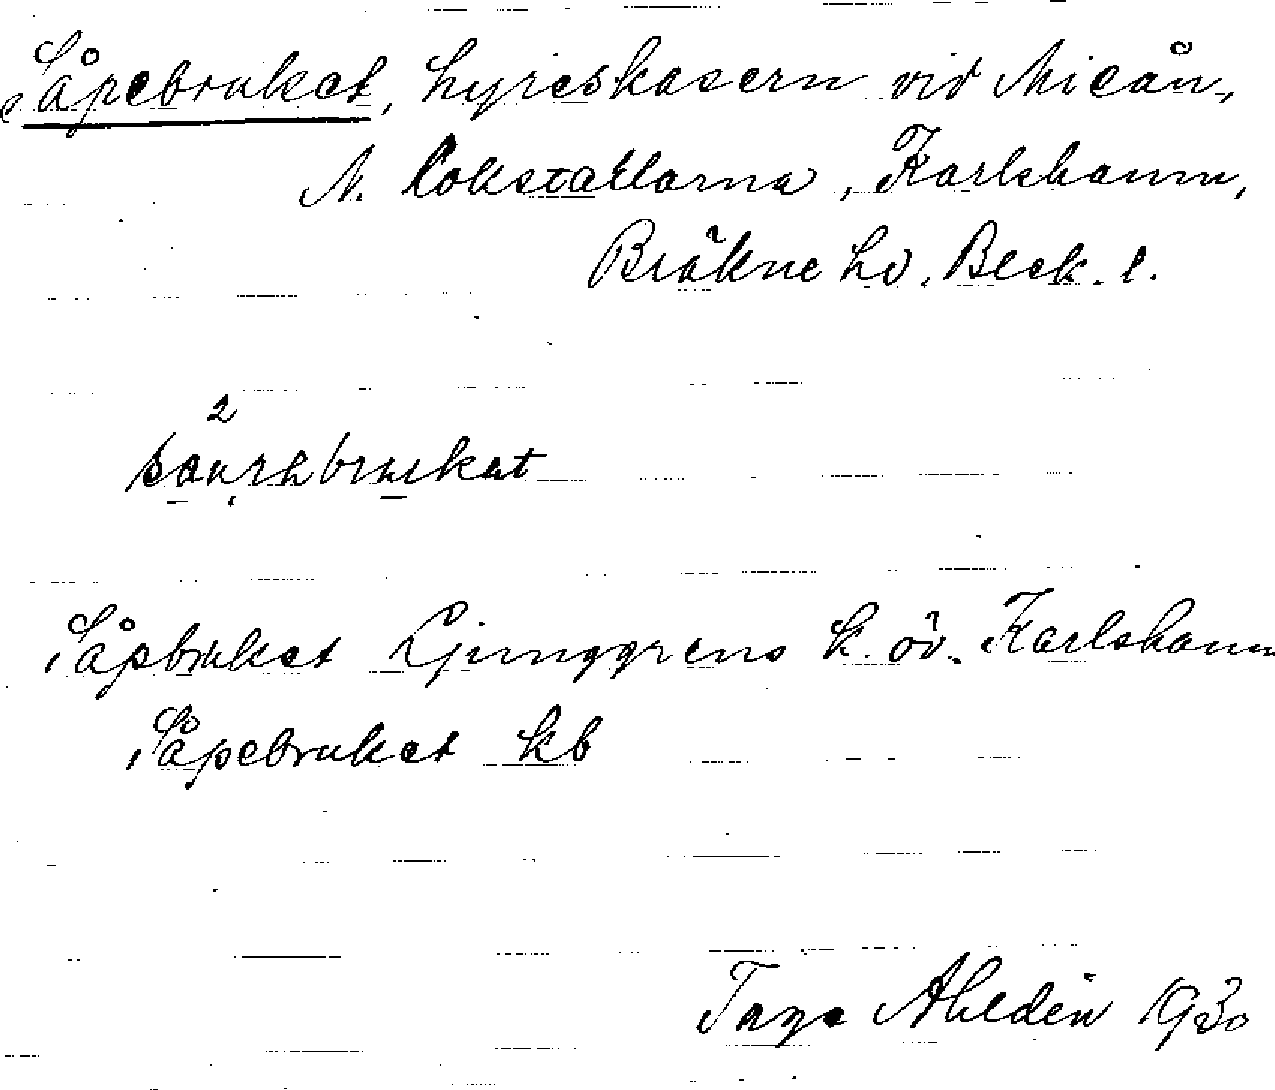 Såpebruket, hyreskasern vid Mieån,
N. Lokstallarna, Karlshamn,
Bräkne hd. Blek. l.
2
Såpbruket Ljunggrens k. öv. Karlshamn
Såpebruket kb
Tage Ahldén 1930